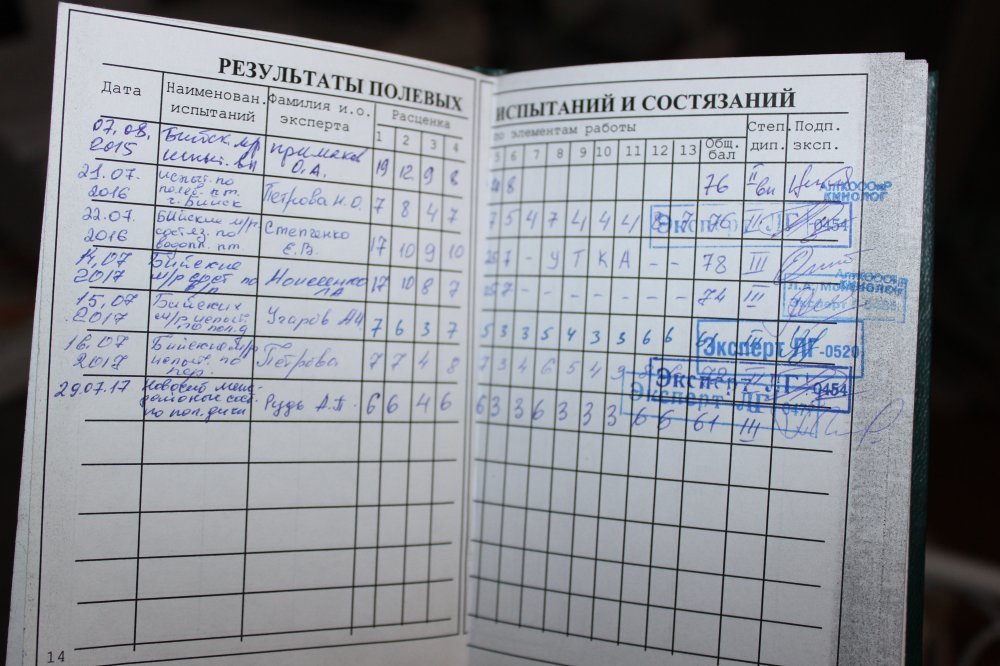 РЕЗУЛЬТАТЫ ПОЛЕВЫХ ИСПЫТАНИЙ И СОСТЯЗАНИЙ
Дата Наименован. испытаний Фамилия и.о. эксперта Расценка по элементам работы Общ. бал Степ. дип. Подп. эксп.
1 2 3 4 5 6 7 8 9 10 11 12 13
07.08. 2015 Бийск. м/р испыт. Примаков О.А. 19 12 9 8 8 76 II
21.07. 2016 испыт. по полев. г. Бийск Петрова Н.О. 7 8 4 7 7 5 4 7 4 4 4 8 7 76 II
22.07. 2016 Бийские м/р. состяз. по водопл. пт Степченко Е.В. 17 10 9 10 - У Т К А - - 78 III
2017 Бийские м/р сост по Моисеенко 17 10 8 7 - - - - - - - 74 III
15.07 2017 Бийских м/р испыт. по пол.д Угаров 7 6 3 7 5 3 3 5 4 3 3 6 6
16.07 2017 Бийские м/р испыт. по Петрова 7 7 4 8 7 3 4 6 5 4 9 8
29.07.17 межрайонные сост. по пол.дичи Рудь А.П. 6 6 4 6 6 3 3 6 3 3 3 6 6 61 III
КИНОЛОГ
Эксперт ЛГ-0454
Эксперт ЛГ-0520
Эксперт ЛГ-0454
Эксперт ЛГ
14